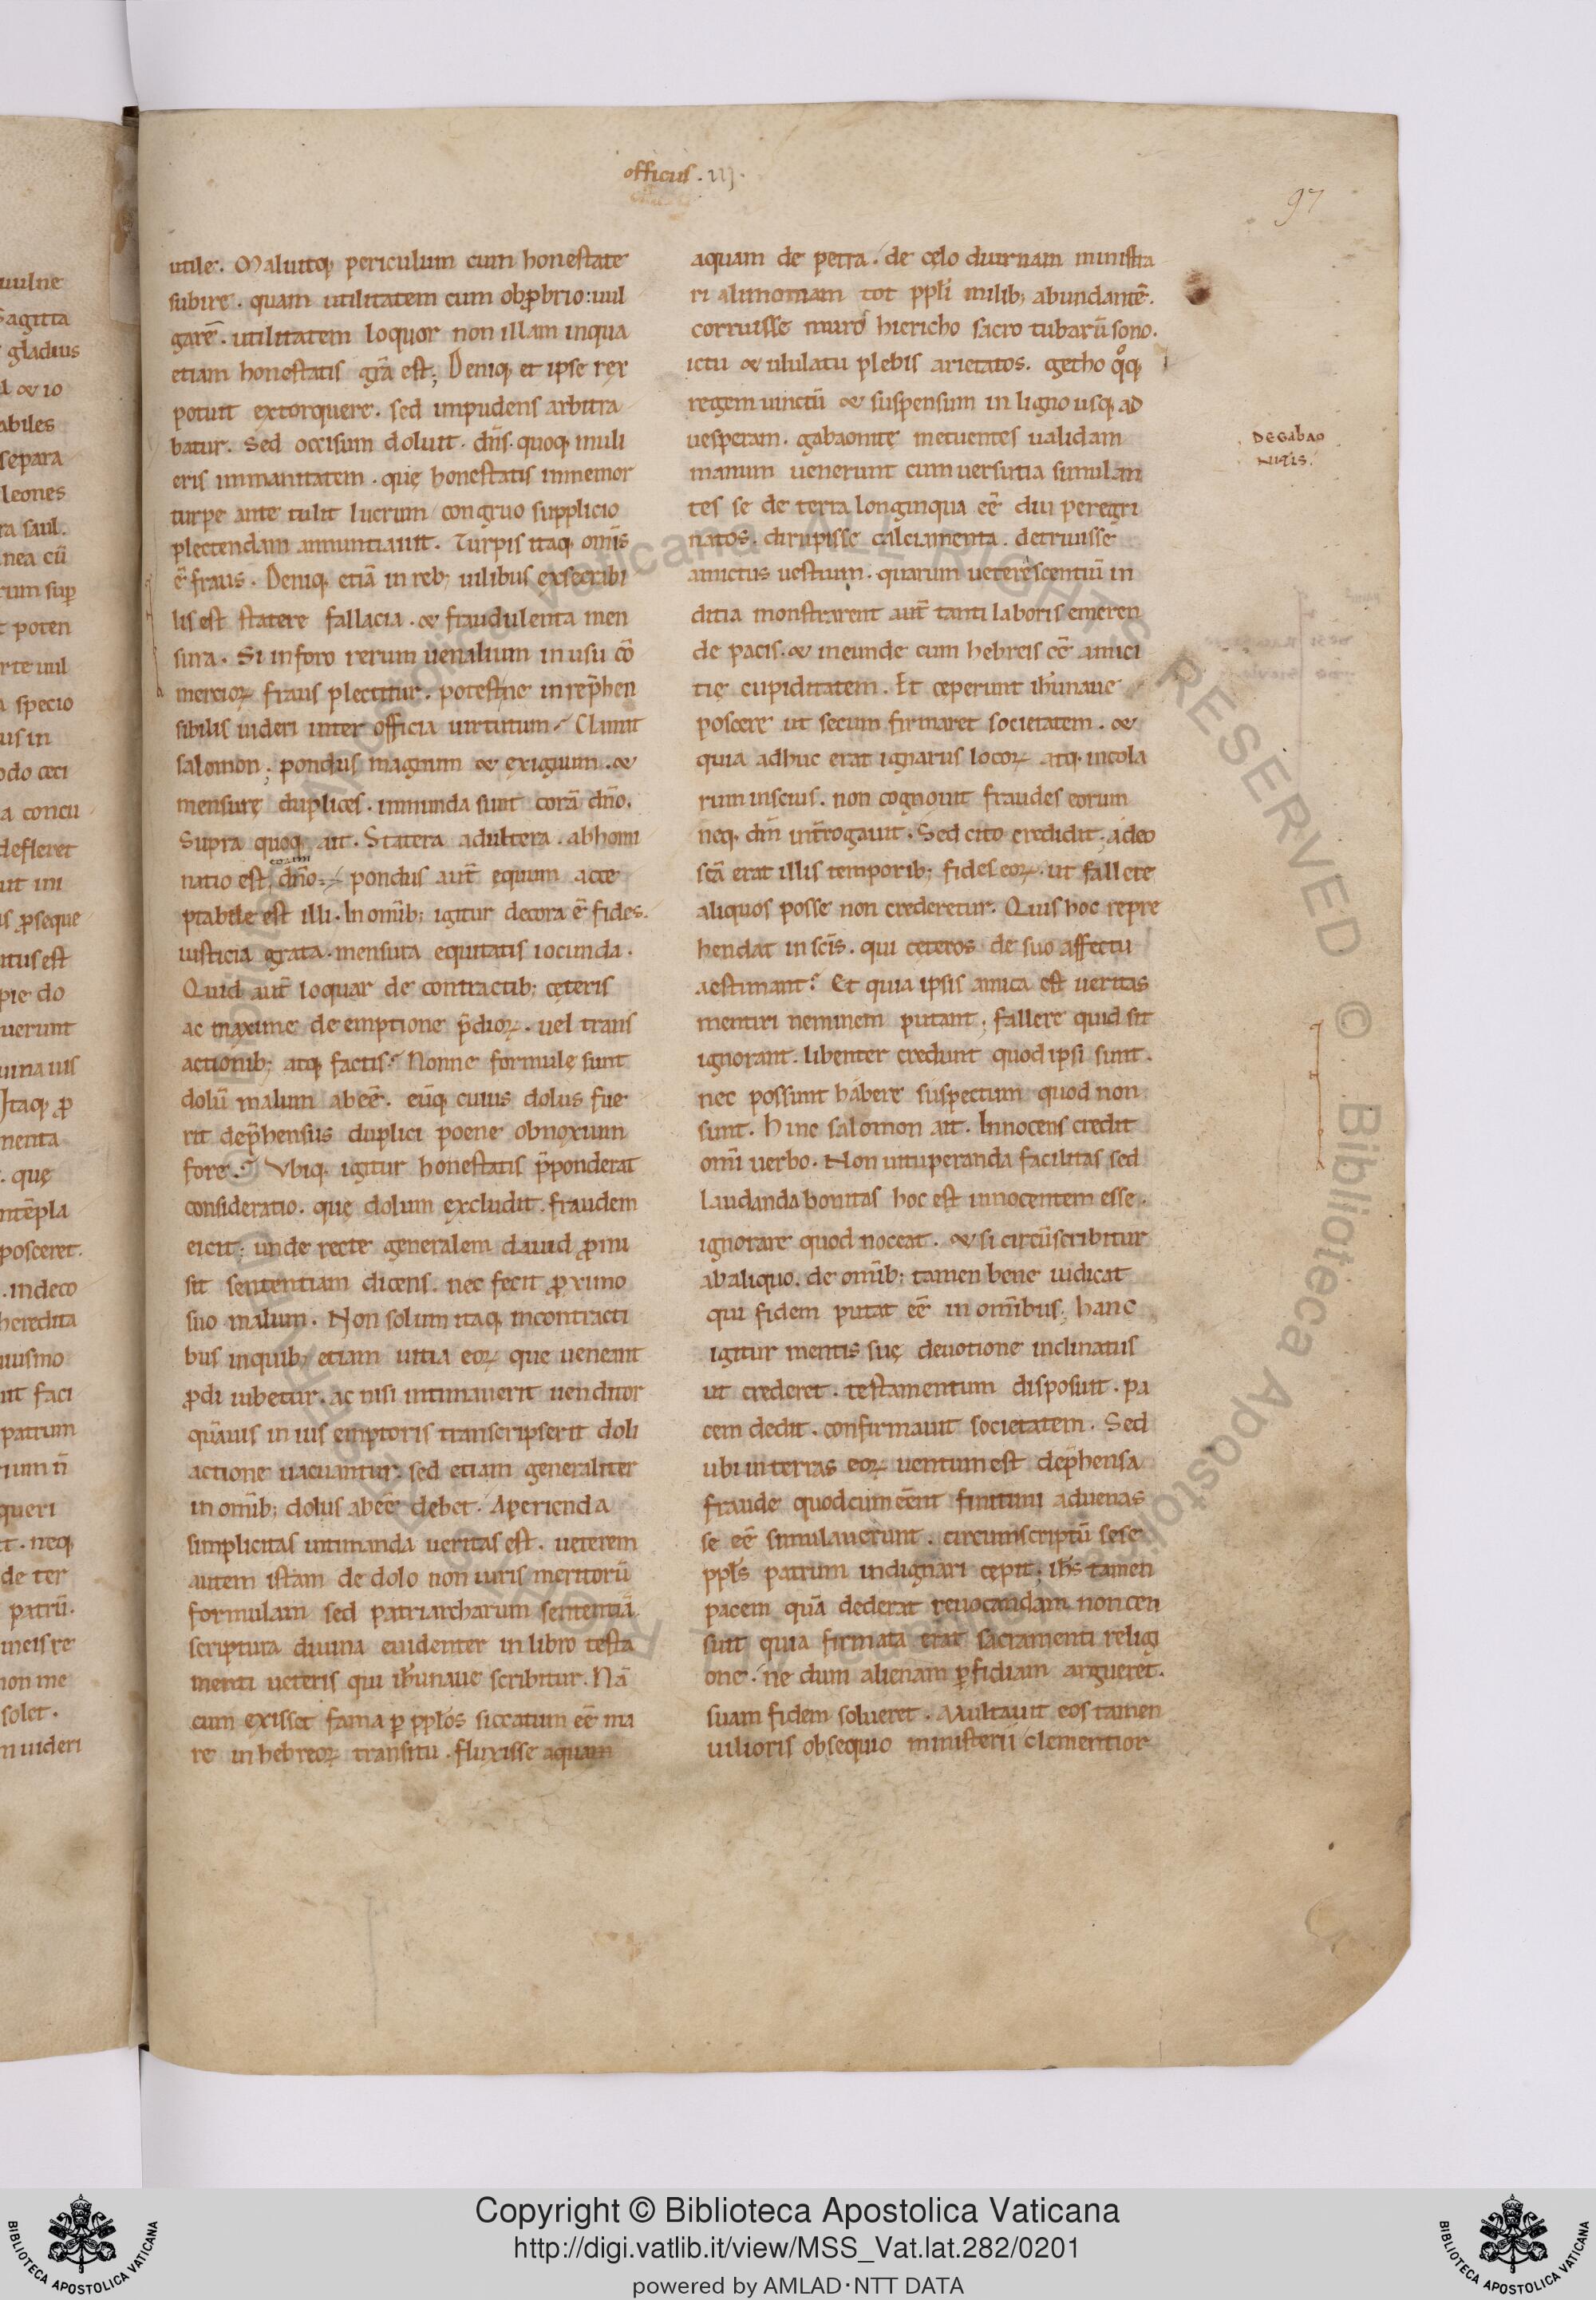 officiis . iij .
97
utile . Maluitq; periculum cum honestate
subire . quam utilitatem cum obprobrio : uul
garē . utilitatem loquor non illam in qua
etiam honestatis grā est ; Deniq; et ipse rex
potuit extorquere . sed impudens arbitra
batur . Sed occisum doluit . dn̄s . quoq; muli
eris immanitatem . quę honestatis inmemor
turpe ante tulit lucrum congruo supplicio
plectendam annuntiauit . Turpis itaq; om̄is
ē fraus . Deniq; etiā in reb; uilibus exsecribi
lis est statere fallacia . & fraudulenta men
sura . Si in foro rerum uenalium in usu cō
mercioꝝ fraus plectitur . potestne inrep̄hen
sibilis uideri inter officia uirtutum . Clamat
salomon ; pondus magnum & exiguum . &
mensurę duplices . inmunda sunt corā dn̄o .
Supra quoq; ait . Statera adultera . abhomi
coram
natio est dn̄o . pondus aut̄ equum acce
ptabile est illi . In om̄ib; igitur decora ē fides .
iusticia grata . mensura equitatis iocunda .
Quid aut̄ loquar de contractib; cęteris
ac maxime de emptione p̄dioꝝ . uel trans
actionib; atq; factis ? Nonne formulę sunt
dolū malum abeē . eūq; cuius dolus fue
rit dep̄hensus duplici poene obnoxium
fore ? Vbiq; igitur honestatis p̄ponderat
consideratio . quę dolum excludit . fraudem
eicit ; unde recte generalem dauid ꝓmi
sit sententiam dicens . nec fecit ꝓximo
suo malum . Non solum itaq; in contracti
bus in quib; etiam uitia eoꝝ que ueneant
ꝓdi iubetur . ac nisi intimauerit uenditor
quāuis in ius emptoris transcripserit doli
actione uacuantur . sed etiam generaliter
in om̄ib; dolus abeē debet . Aperienda
simplicitas intimanda ueritas est . ueterem
autem istam de dolo non iuris meritorū
formulam sed patriarcharum sententiā
scriptura diuina euidenter in libro testa
menti ueteris qui ih̄unaue scribitur . Nā
cum exisset fama ꝑ ppl̄os siccatum eē ma
re in hebreoꝝ transitu . fluxisse aquam
aquam de petra . de cęlo diurnam ministra
ri alimoniam tot ppl̄i milib; abundantē .
corruisse muros hiericho sacro tubarū sono .
ictu & ululatu plebis arietatos . getho qoq;
regem uinctū & suspensum in ligno usq; ad
uesperam . gabaonitę metuentes ualidam
manum uenerunt cum uersutia simulan
tes se de terra longinqua eē diu peregri
natos . dirupisse calciamenta . detruisse
amictus uestium . quarum ueterescentiū in
ditia monstrarent aut̄ tanti laboris emeren
de pacis . & ineunde cum hebreis eē amici
tię cupiditatem . Et ceperunt ih̄unaue
poscere ut secum firmaret societatem . &
quia adhuc erat ignarus locoꝝ atq; incola
rum inscius . non cognouit fraudes eorum
neq; dn̄m int̄rogauit . Sed cito credidit ; adeo
sc̄a erat illis temporib; fides eoꝝ . ut fallere
aliquos posse non crederetur . Quis hoc repre
hendat in sc̄is . qui cęteros de suo affectu
aestimant ? Et quia ipsis amica est ueritas
mentiri neminem putant . fallere quid sit
ignorant . libenter credunt quod ipsi sunt .
nec possunt habere suspectum quod non
sunt . Hinc salomon ait . Innocens credit
om̄i uerbo . Non uituperanda facilitas sed
laudanda bonitas hoc est innocentem esse .
ignorare quod noceat . & si circūscribitur
ab aliquo . de om̄ib; tamen bene iudicat
qui fidem putat eē in om̄ibus ; hanc
igitur mentis suę deuotione inclinatus
ut crederet . testamentum disposuit . pa
cem dedit . confirmauit societatem . Sed
ubi in terras eoꝝ uentum est dep̄hensa
fraude quod cum eēnt finitimi aduenas
se eē simulauerunt . circumscriptū sese
ppl̄s patrum indignari cępit ; ih̄s tamen
pacem quā dederat reuocandam non cen
suit quia firmata erat sacramenti religi
one . ne dum alienam ꝑfidiam argueret .
suam fidem solueret . Multauit eos tamen
uilioris obsequio ministerii clementior
DE GABAO
NITIS .
Copyright © Biblioteca Apostolica Vaticana
http://digi.vatlib.it/view/MSS_Vat.lat.282/0201
powered by AMLAD·NTT DATA
BIBLIOTECA APOSTOLICA VATICANA
BIBLIOTECA APOSTOLICA VATICANA